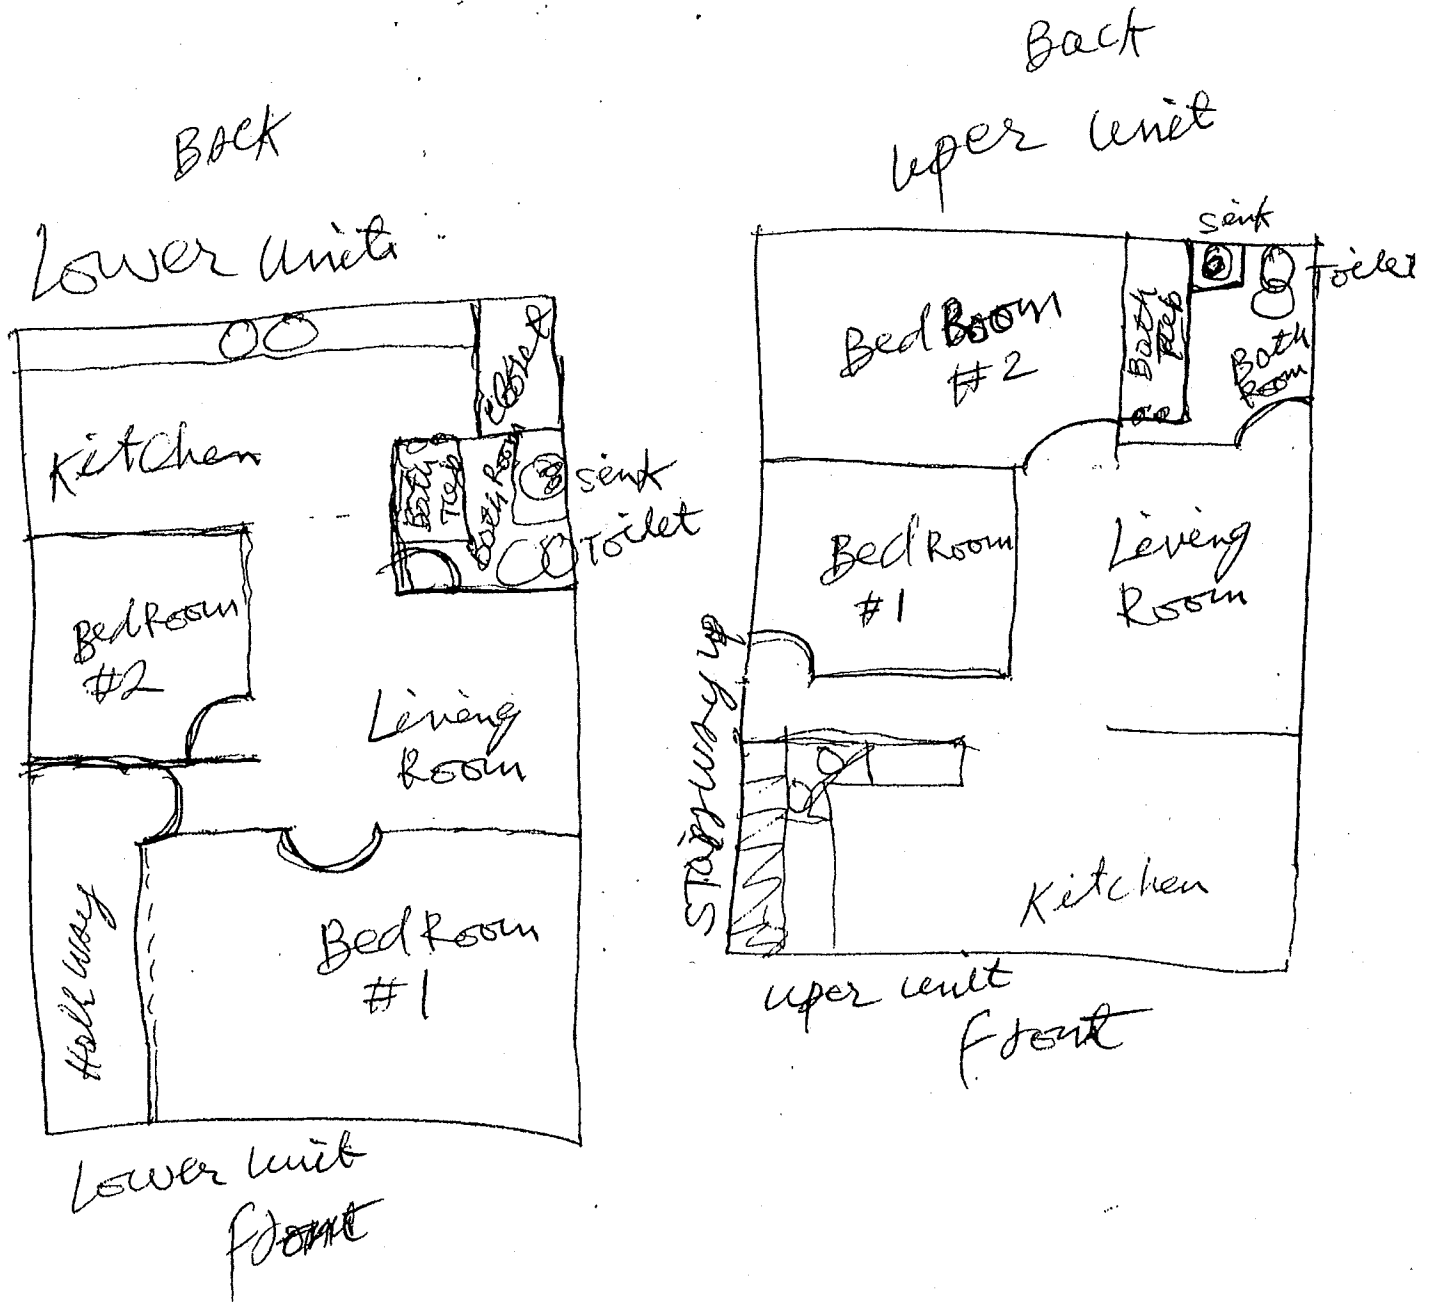 BACK
Lower Unit
Closet
Kitchen
Bath
Tub
Bath Room
Sink
Toilet
BedRoom
#2
Living
Room
Hall way
BedRoom
#1
Lower Unit
Front
Back
uper unit
Sink
Toilet
Bath
Tub
Bath
Room
BedRoom
#2
BedRoom
#1
Living
Room
Stairway up
Kitchen
uper unit
Front